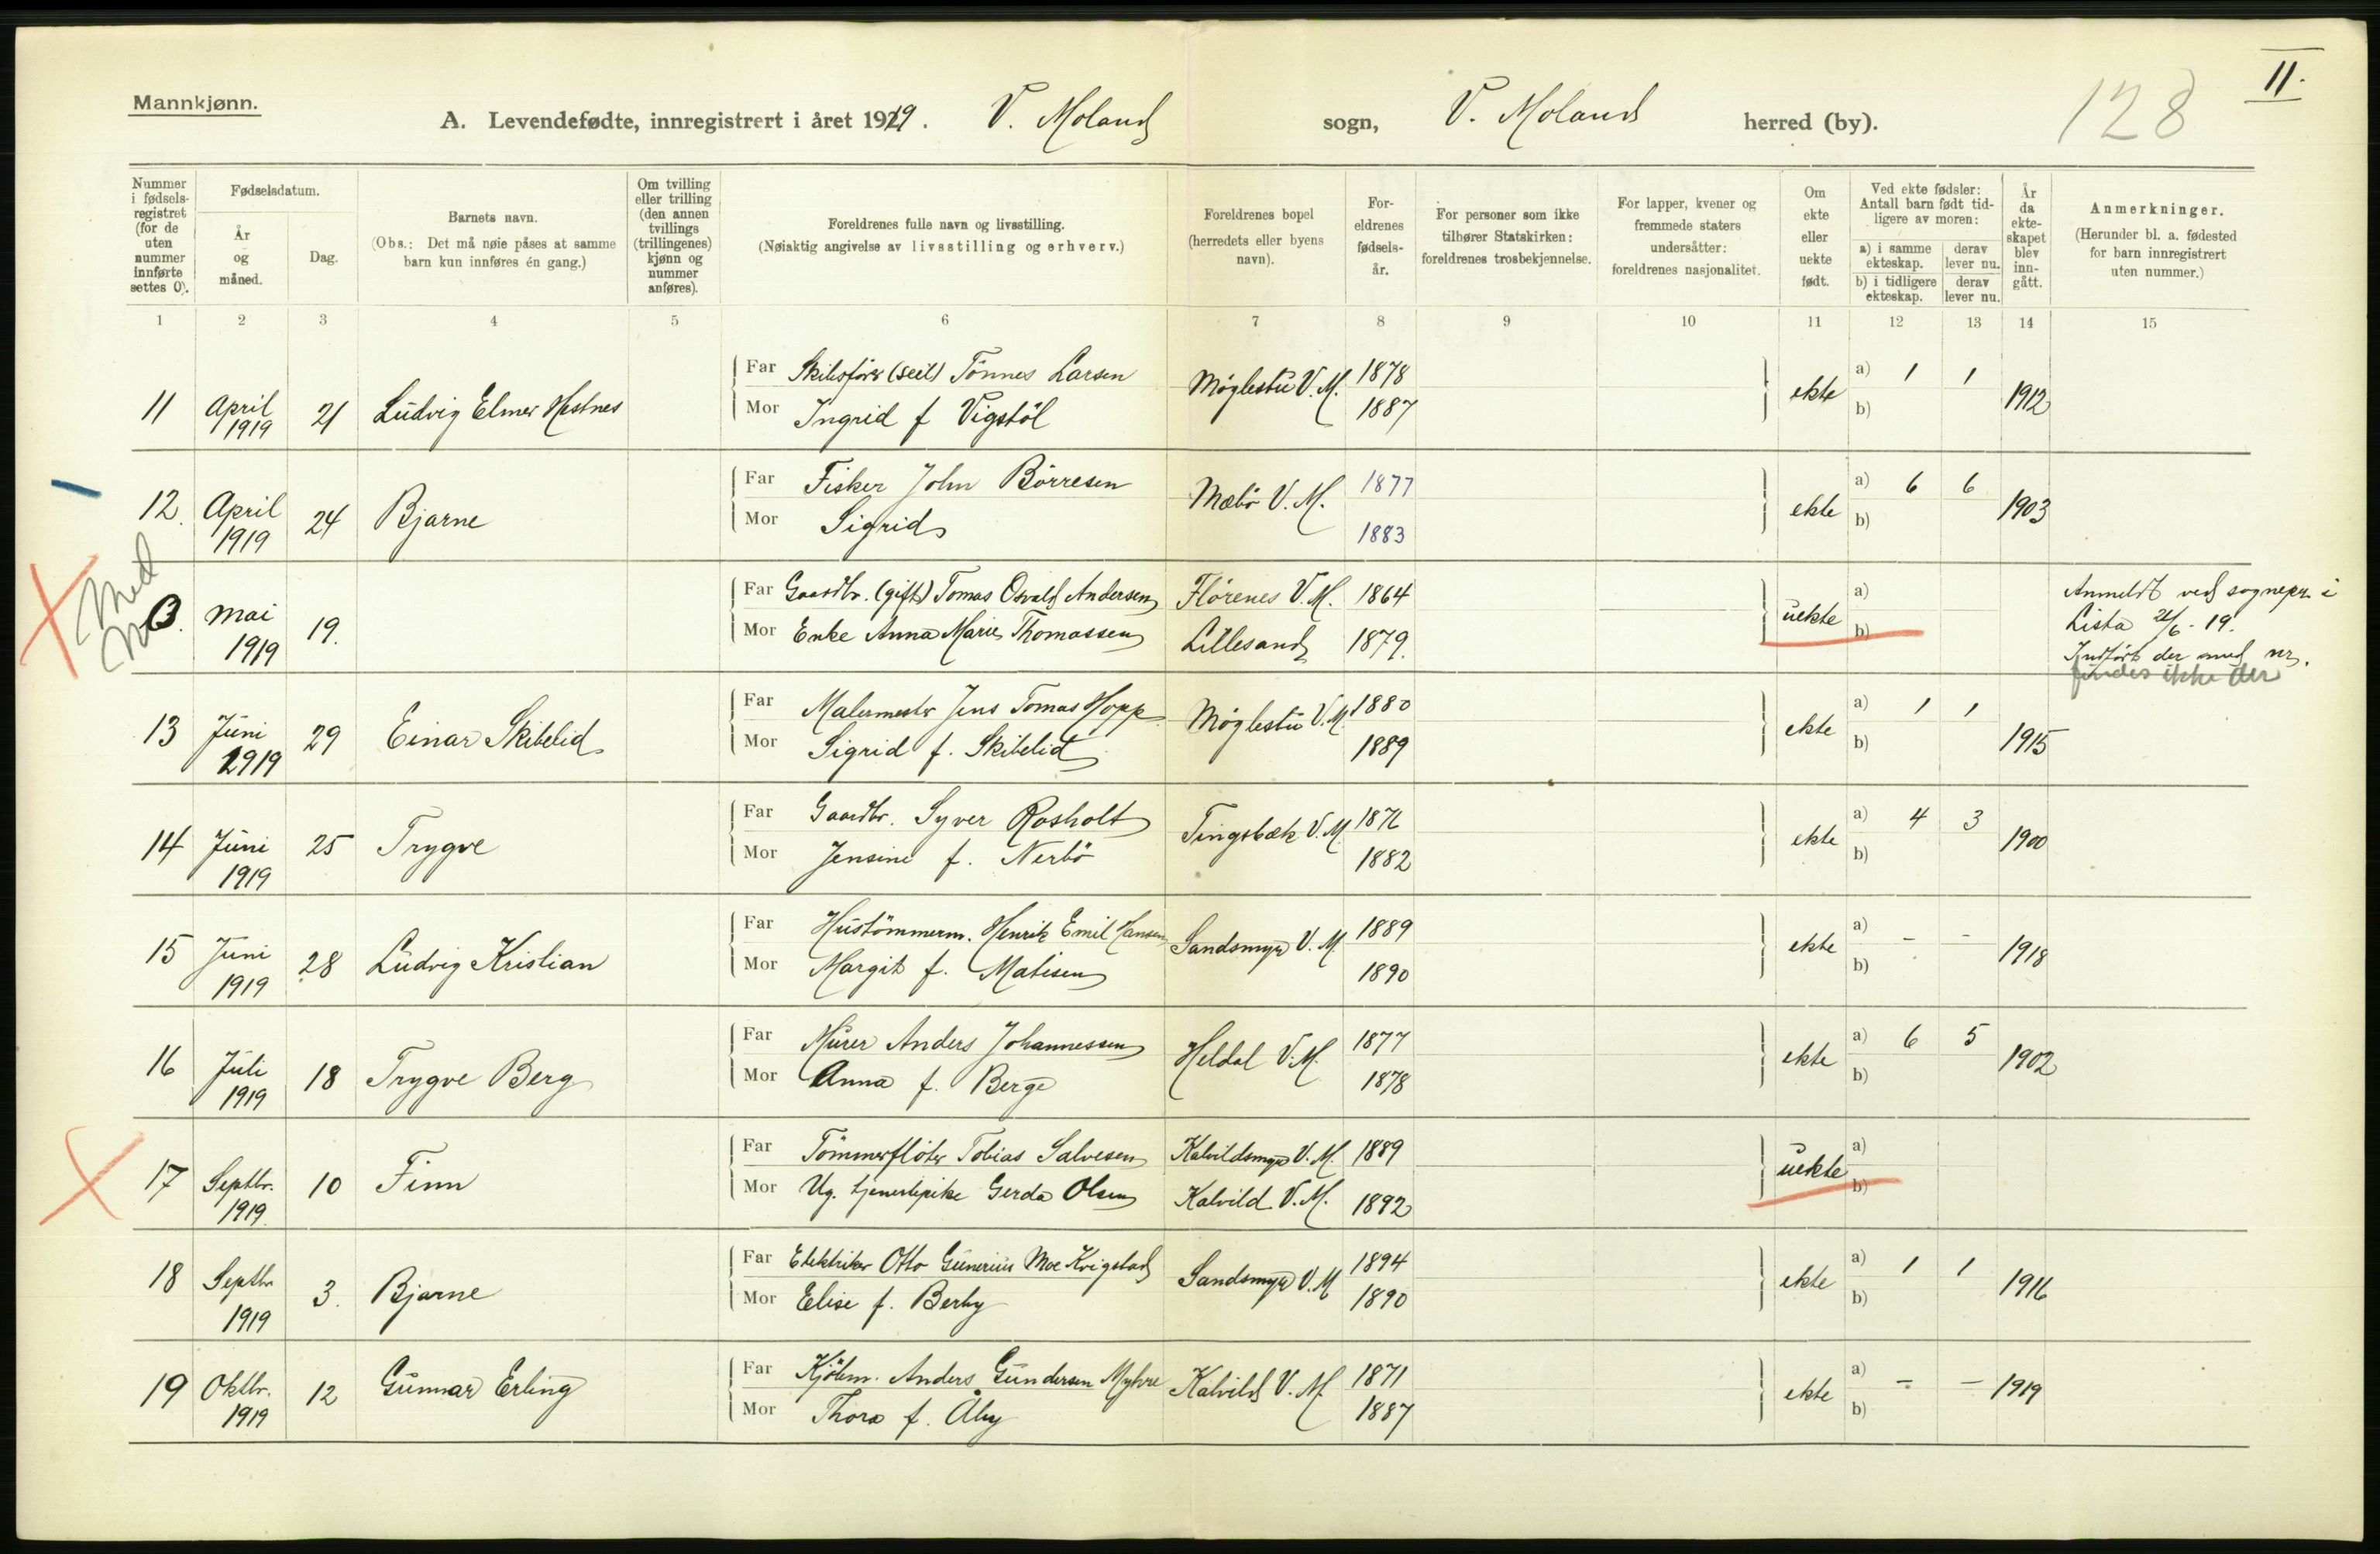 Mannkjønn.
II.
128
A. Levendefødte, innregistrert i året 1919. V. Moland sogn, V. Moland herred (by).
Nummer i fødsels-registret (for de uten nummer innførte settes 0).
Fødselsdatum.
År og måned.
Dag.
Barnets navn.
(Obs.: Det må nøie påses at samme barn kun innføres én gang.)
Om tvilling eller trilling (den annen tvillings (trillingenes) kjønn og nummer anføres).
Foreldrenes fulle navn og livsstilling.
(Nøiaktig angivelse av livsstilling og erhverv.)
Foreldrenes bopel (herredets eller byens navn).
For-eldrenes fødsels-år.
For personer som ikke tilhører Statskirken: foreldrenes trosbekjennelse.
For lapper, kvener og fremmede staters undersåtter: foreldrenes nasjonalitet.
Om ekte eller uekte født.
Ved ekte fødsler: Antall barn født tid-ligere av moren:
a) i samme ekteskap.
derav lever nu.
b) i tidligere ekteskap.
derav lever nu.
År da ekte-skapet blev inn-gått.
Anmerkninger.
(Herunder bl. a. fødested for barn innregistrert uten nummer.)
1 2 3 4 5 6 7 8 9 10 11 12 13 14 15
11 April 1919 21 Ludvig Elmer Hestnes
Far Skibsfører (seil) Tönnes Larsen Møglestu V. M. 1878 ekte a) 1 1 1912
Mor Ingrid f Vigstöl 1887 b)
12. April 1919 24 Bjarne
Far Fisker John Börresen Mæbö V. M. 1877 ekte a) 6 6 1903
Mor Sigrid 1883 b)
Med
0. Mai 1919 19.
Far Gaardbr. (gift) Tomas Osvald Andersen Flörenes V. M. 1864 uekte a)
Mor Enke Anna Marie Thomassen Lillesand 1879. b)
Anmeldt ved sognepr. i
Lista 21/6 - 19.
Indført der med nr.
findes ikke der
13 Juni 1919 29 Einar Skibelid
Far Malermester Jens Tomas Hopp Møglestu V. M. 1880 ekte a) 1 1 1915
Mor Sigrid f. Skibelid 1889 b)
14 Juni 1919 25 Trygve
Far Gaardbr. Syver Rosholt Tingsbæk V. M. 1876 ekte a) 4 3 1900
Mor Jensine f. Nerbö 1882 b)
15 Juni 1919 28 Ludvig Kristian
Far Hustömmerm. Henrik Emil Hansen Sandsmyr V. M. 1889 ekte a) - - 1918
Mor Margit f. Matisen 1890 b)
16 Juli 1919 18 Trygve Berg
Far Murer Anders Johannessen Heldal V. M. 1877 ekte a) 6 5 1902
Mor Anna f. Berge 1878 b)
17 Septbr. 1919. 10 Finn
Far Tömmerflöter Tobias Salvesen Kalvildsmyr V. M. 1889 uekte a)
Mor Ug. tjenestepike Gerda Olsen Kalvild V. M. 1892 b)
18 Septbr 1919 3. Bjarne
Far Elektriker Otto Gunerius Moe Kvigstad Sandsmyr V. M 1894 ekte a) 1 1 1916
Mor Elise f. Berby 1890 b)
19 Oktbr. 1919 12 Gunnar Erling
Far Kjöbm. Anders Gundersen Myhre Kalvild V. M 1871 ekte a) - - 1919
Mor Thora f. Åby 1887 b)